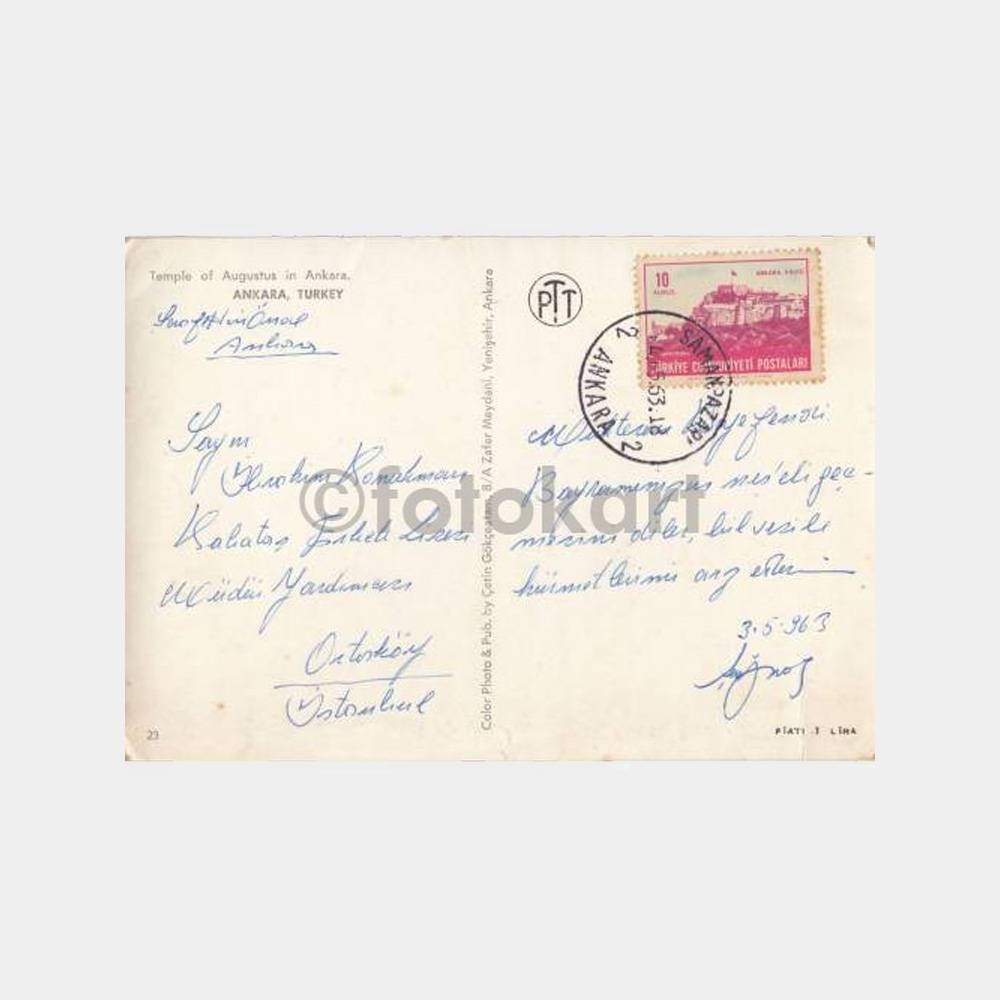 Temple of Augustus in Ankara.
ANKARA, TURKEY
Ankara
Sayın
İbrahim
Kabataş Erkek Lisesi
Müdür Yardımcısı
Ortaköy
İstanbul
23
Color Photo & Pub. by Çetin Gökçeatam, 8/A Zafer Meydanı, Yenişehir, Ankara
PTT
10
KURUŞ
ANKARA KALESİ
TÜRKİYE CUMHURİYETİ POSTALARI
SAMANPAZARI
63.18
2 ANKARA 2
Muhterem Beyefendi
Bayramınızın neş'eli geç-
mesini diler, bilvesile
hürmetlerimi arz ederim
3.5.963
FİATI 1 LİRA
©fotokart